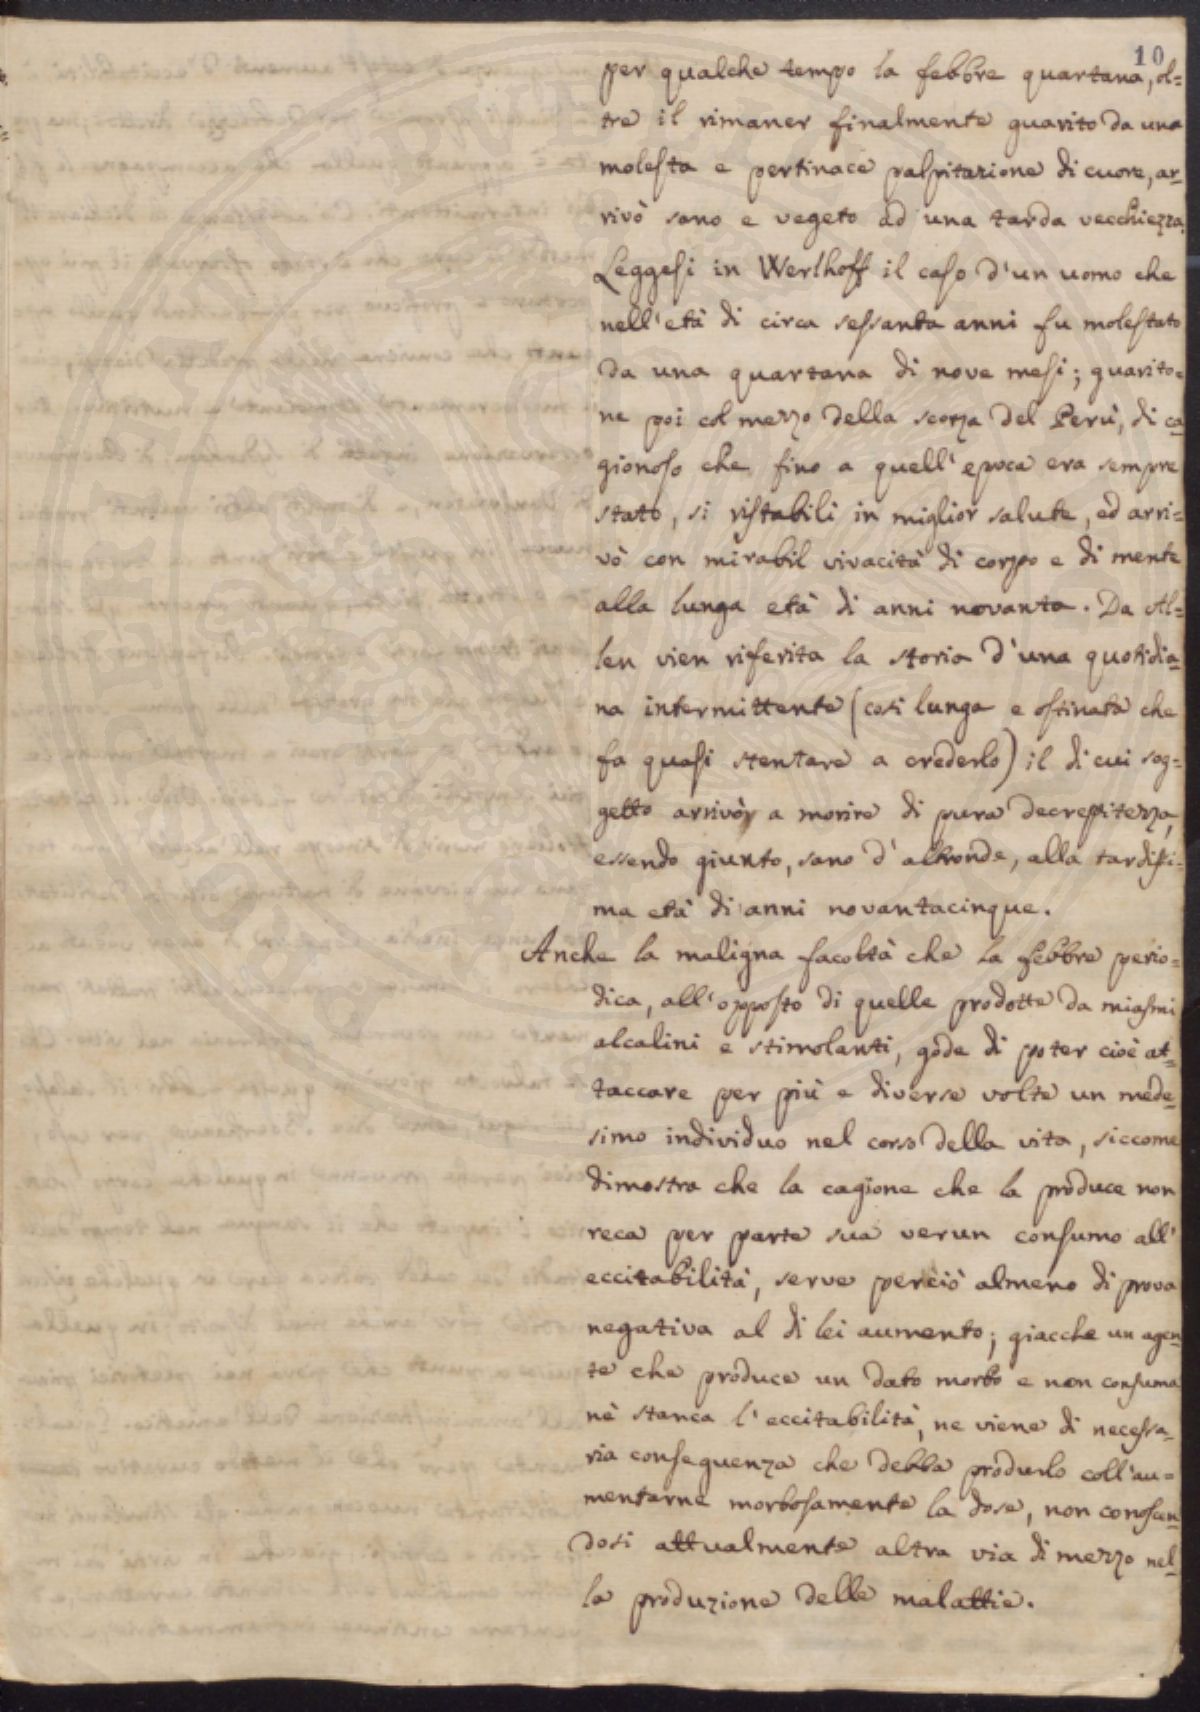 10
per qualche tempo la febbre quartana, ol=
tre il rimaner finalmente guarito da una
molesta e pertinace palpitazione di cuore, ar-
rivò sano e vegeto ad una tarda vecchiezza.
Leggesi in Werlhoff il caso d'un uomo che
nell'età di circa sessanta anni fu molestato
da una quartana di nove mesi; guarito=
ne poi col mezzo della scorza del Perù, di ca-
gionoso che fino a quell'epoca era sempre
stato, si ristabilì in miglior salute, ed arri=
vò con mirabil vivacità di corpo e di mente
alla lunga età di anni novanta. Da Al=
len vien riferita la storia d'una quotidia-
na intermittente (così lunga e ostinata che
fa quasi stentare a crederlo) il di cui sog=
getto arrivò a morire di pura decrepitezza,
essendo giunto, sano d'altronde, alla tardissi-
ma età di anni novantacinque.
Anche la maligna facoltà che la febbre perio=
dica, all'opposto di quelle prodotte da miasmi
alcalini e stimolanti, gode di poter cioè at=
taccare per più e diverse volte un mede-
simo individuo nel corso della vita, siccome
dimostra che la cagione che la produce non
reca per parte sua verun consumo all'
eccitabilità, serve perciò almeno di prova
negativa al di lei aumento; giacche un agen-
te che produce un dato morbo e non consuma
nè stanca l'eccitabilità, ne viene di necessa-
ria conseguenza che debba produrlo coll'au=
mentarne morbosamente la dose, non conoscen-
dosi attualmente altra via di mezzo nel-
la produzione delle malattie.